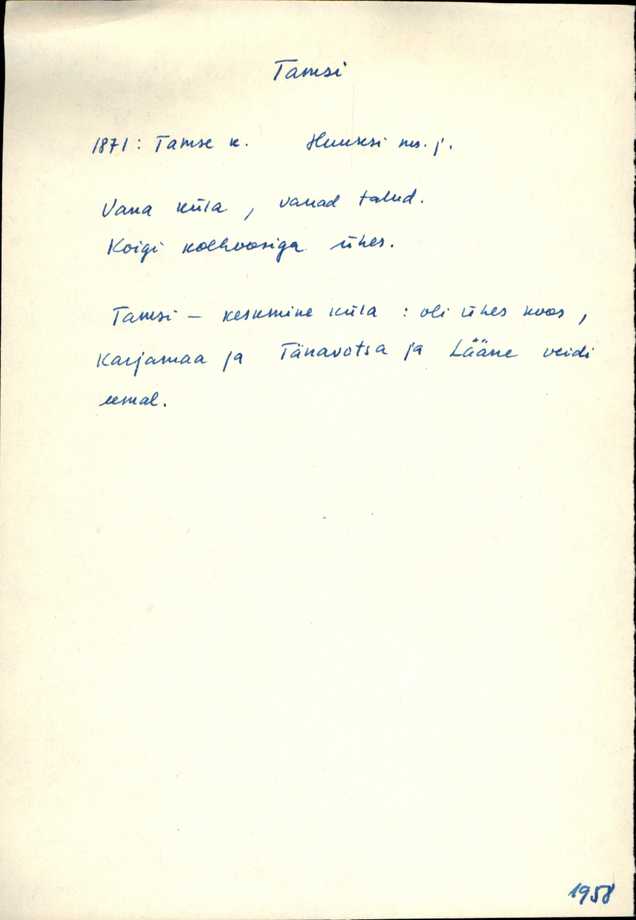 Tamsi
1871: Tamse k. Huuksi ms. j.
Vana küla, vanad talud.
Koigi kolhoosiga ühes.
Tamsi – keskmine küla: oli ühes koos,
Karjamaa ja Tänavotsa ja Lääne veidi
eemal.
1958